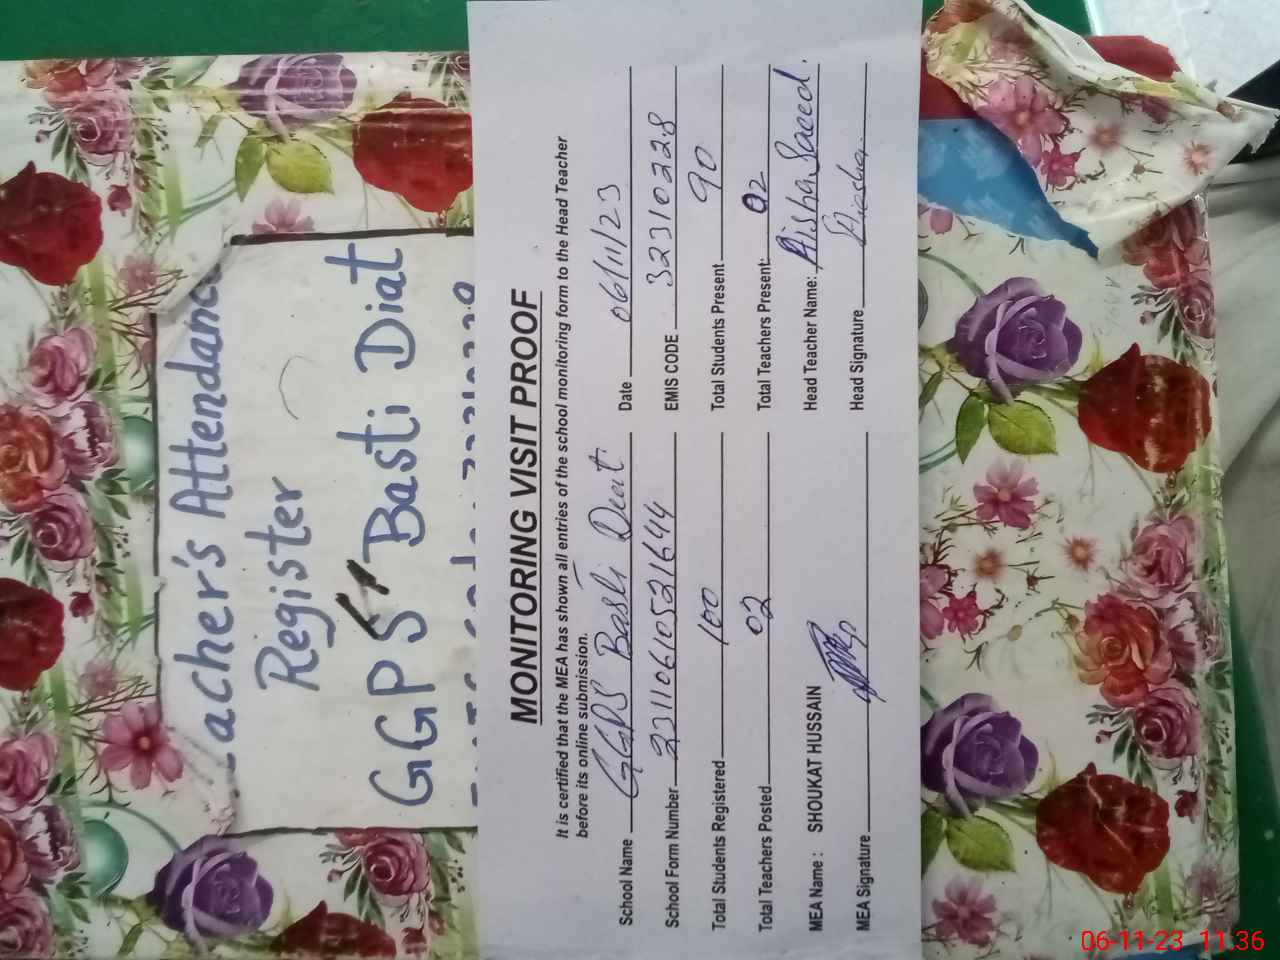 Teacher's Attendance
Register
GGPS Basti Diat
MONITORING VISIT PROOF
It is certified that the MEA has shown all entries of the school monitoring form to the Head Teacher
before its online submission.
School Name GGPS Basti Deat Date 06/11/23
School Form Number 231106105321644 EMIS CODE 32310228
Total Students Registered 100 Total Students Present 90
Total Teachers Posted 02 Total Teachers Present: 02
MEA Name : SHOUKAT HUSSAIN Head Teacher Name: Aisha Saeed.
MEA Signature Head Signature Aisha.
06-11-23 11:36